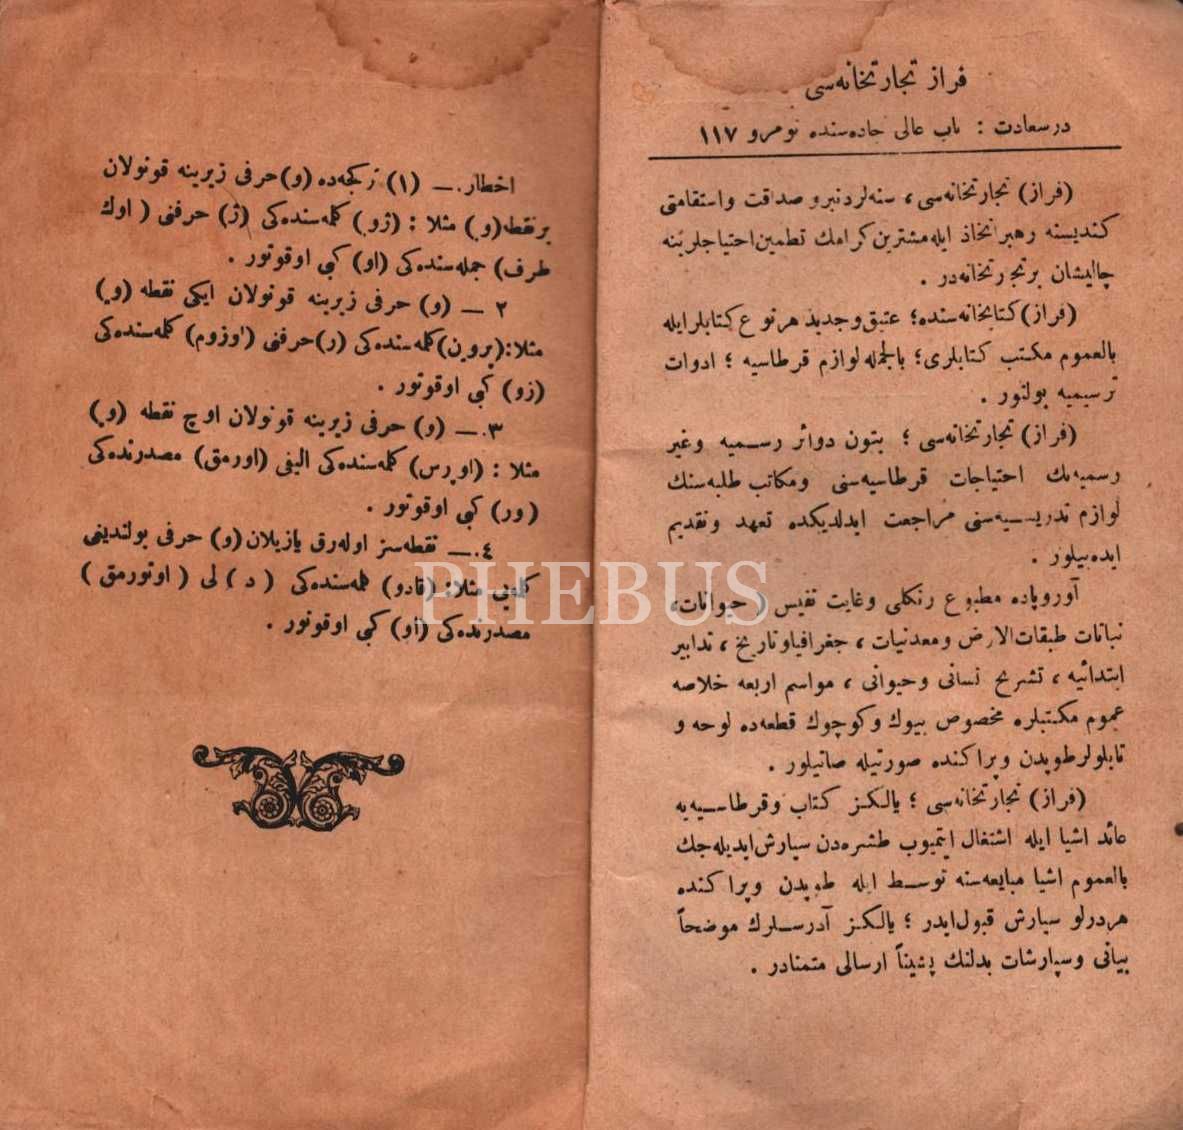 فراز تجارتخانه‌سی
درسعادت : باب عالی جاده‌سنده نومرو ١١٧
(فراز) تجارتخانه‌سی ، سنه‌لردنبرو صداقت واستقامتی
کندیسنه رهبر اتخاذ ایله مشترین کرامك تطمین احتیاجلرینه
چالیشان برتجارتخانه‌در .
(فراز) کتابخانه‌سنده ؛ عتیق وجدید هرنوع کتابلر ایله
بالعموم مکتب کتابلری ؛ بالجمله لوازم قرطاسیه ؛ ادوات
ترسیمیه بولنور .
(فراز) تجارتخانه‌سی ؛ بتون دوائر رسمیه وغیر
رسمیه‌نك احتیاجات قرطاسیه‌سنی ومکاتب طلبه‌سنك
لوازم تدریسیه‌سنی مراجعت ایدلدیکده تعهد وتقدیم
ایده‌بیلور .
آوروپاده مطبوع رنکلی وغایت نفیس ( حیوانات،
نباتات طبقات‌الارض ومعدنیات ، جغرافیاوتاریخ ، تدابیر
ابتدائیه ، تشریح انسانی وحیوانی ، مواسم اربعه خلاصه
عموم مکتبلره مخصوص بیوك وکوچوك قطعه‌ده لوحه و
تابلولر طوپدن وپراکنده صورتیله صاتیلور .
(فراز) تجارتخانه‌سی ؛ یالکز کتاب وقرطاسیه‌یه
عائد اشیا ایله اشتغال ایتمیوب طشره‌دن سپارش ایدیله‌جك
بالعموم اشیا مبایعه‌سنه توسط ایله طوپدن وپراکنده
هردرلو سپارش قبول ایدر ؛ یالکز آدرسلرك موضحاً
بیانی وسپارشات بدلنك پشیناً ارسالی متمنادر .
اخطار. — (١) ترکجه‌ده (و) حرفی زیرینه قونولان
برنقطه (و) مثلا : (ژو) کلمه‌سنده‌کی (ژ) حرفنی ( اوك
طرف) جمله‌سنده‌کی (او) کبی اوقوتور .
٢ — (و) حرفی زیرینه قونولان ایکی نقطه (و)
مثلا: (پروین) کلمه‌سنده‌کی (ر) حرفنی (اوزوم) کلمه‌سنده‌کی
(زو) کبی اوقوتور .
٣. — (و) حرفی زیرینه قونولان اوچ نقطه (و)
مثلا : (اورس) کلمه‌سنده‌کی الیفی (اورمق) مصدرنده‌کی
(ور) کبی اوقوتور .
٤. — نقطه‌سز اوله‌رق یازیلان (و) حرفی بولندیغی
کلمه‌یی مثلا: (قادو) کلمه‌سنده‌کی ( د ) لی ( اوتورمق )
مصدرنده‌کی (او) کبی اوقوتور .
PHEBUS